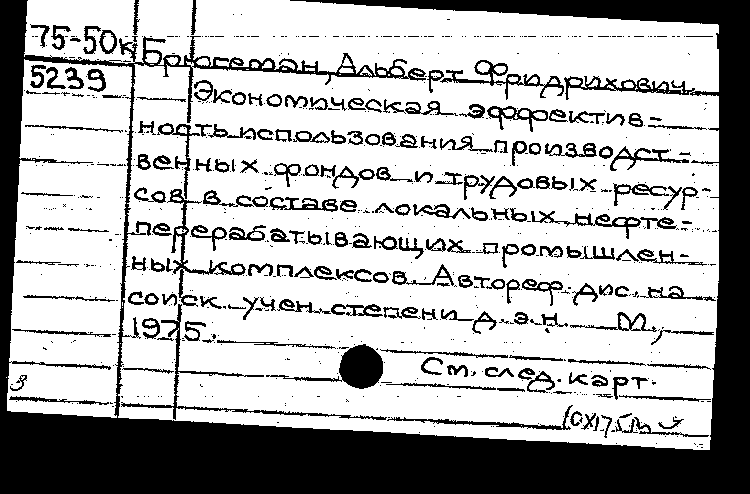 75-50к
5239
Брюгеман, Альберт Фридрихович.
Экономическая эффектив-
ность использования производст-
венных фондов и трудовых ресур-
сов в составе локальных нефте-
перерабатывающих промышлен-
ных комплексов. Автореф. дис. на
соиск. учен. степени д.э.н. М.,
1975.
См. след. карт.
3